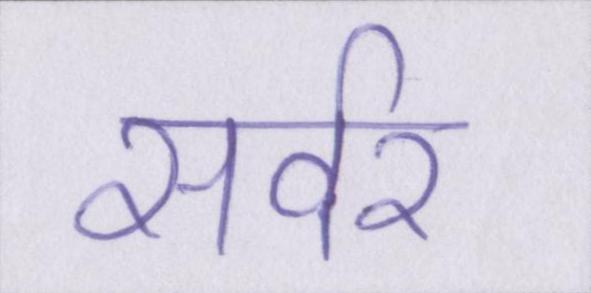 सर्वर